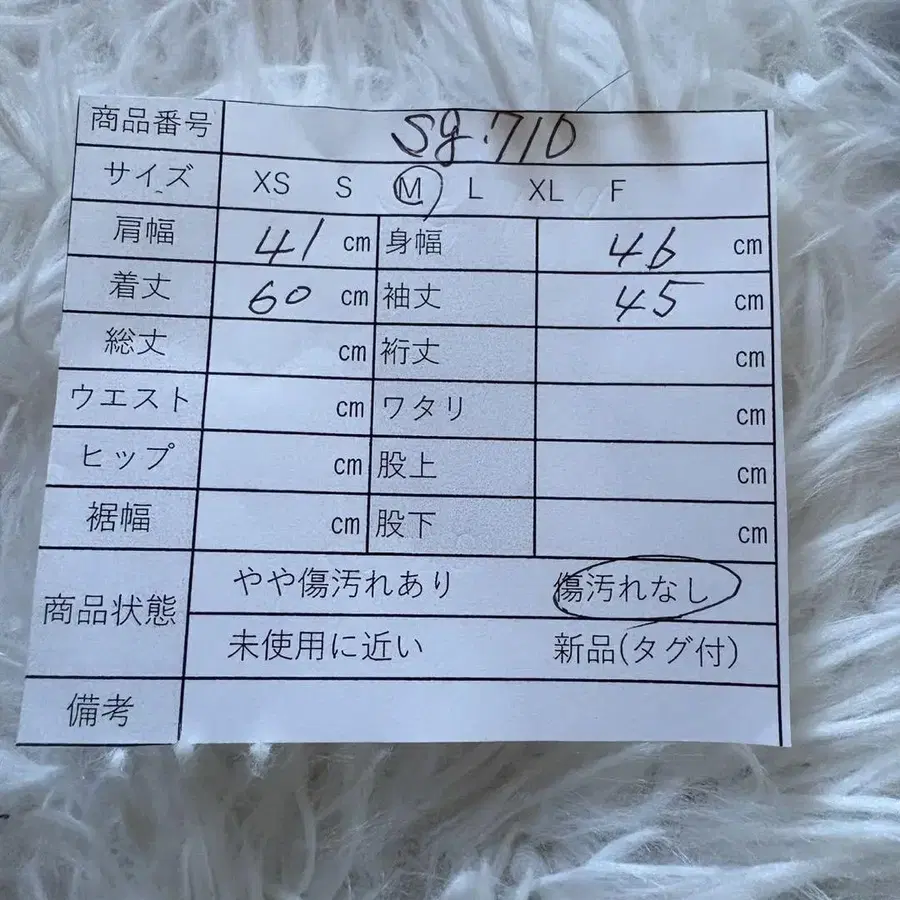 商品番号 sg.710
サイズ XS S M L XL F
肩幅 41 cm 身幅 46 cm
着丈 60 cm 袖丈 45 cm
総丈 cm 裄丈 cm
ウエスト cm ワタリ cm
ヒップ cm 股上 cm
裾幅 cm 股下 cm
商品状態 やや傷汚れあり 傷汚れなし
未使用に近い 新品(タグ付)
備考